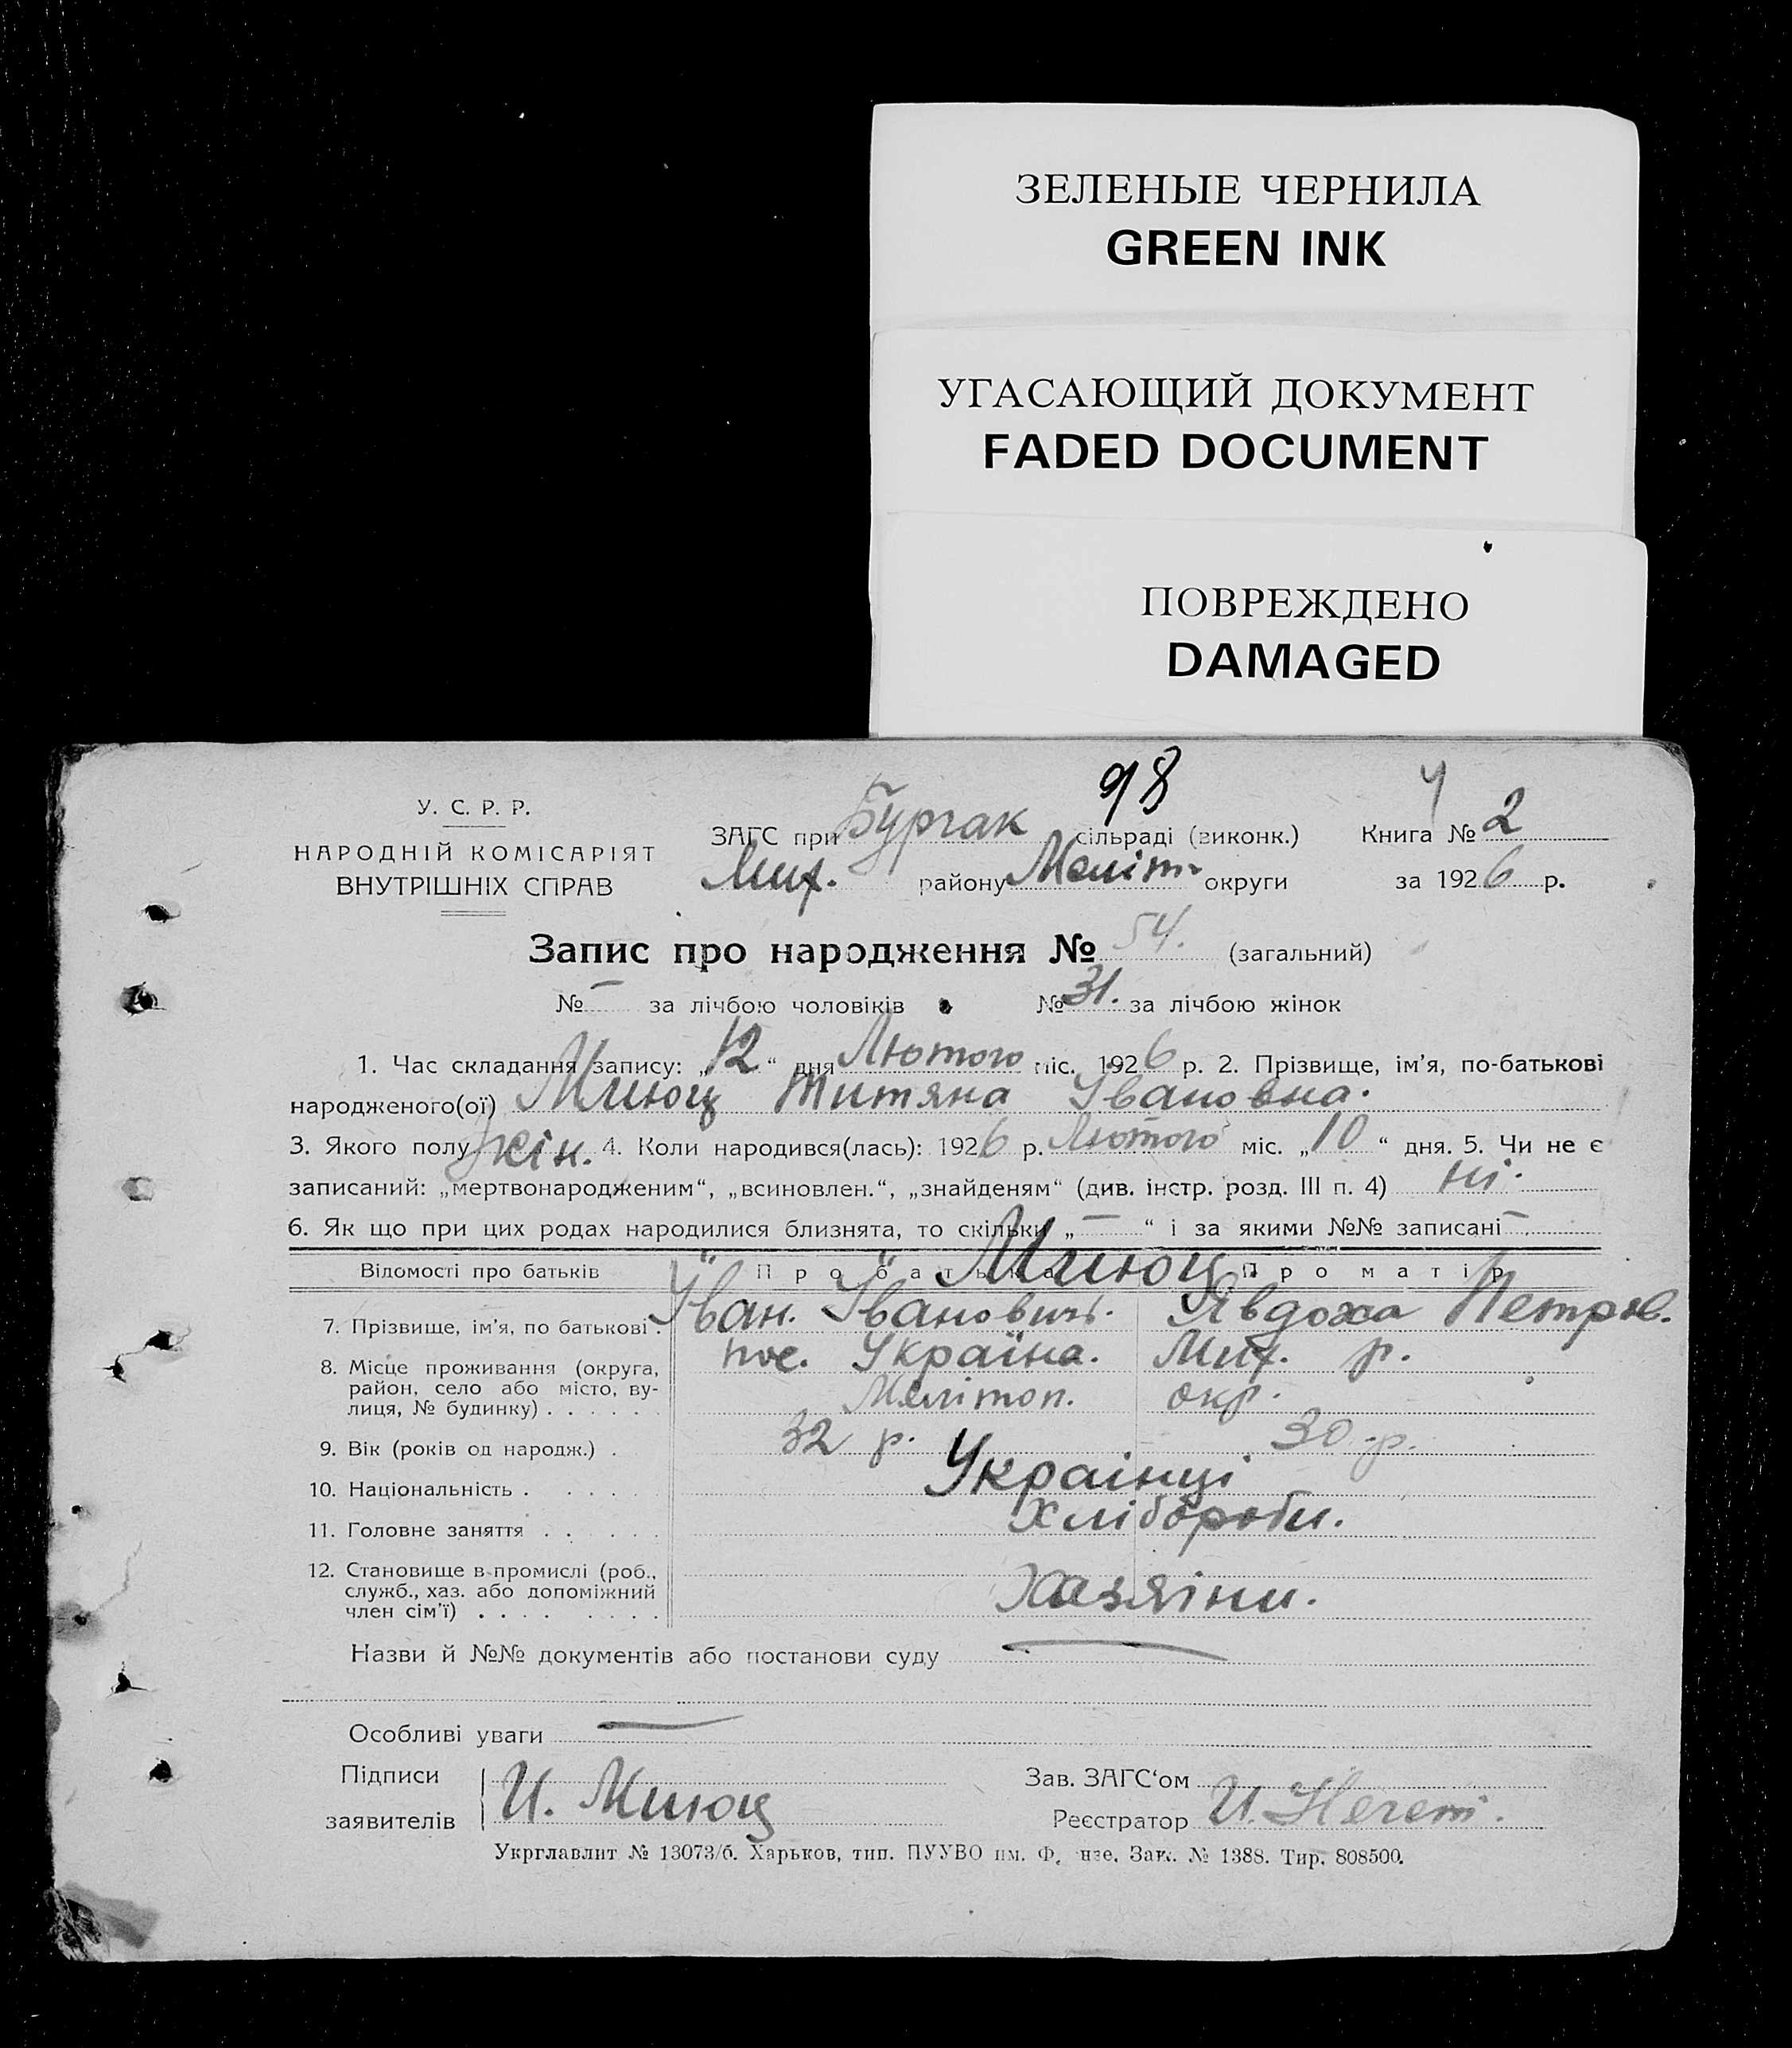 ЗЕЛЕНЫЕ ЧЕРНИЛА
GREEN INK
УГАСАЮЩИЙ ДОКУМЕНТ
FADED DOCUMENT
ПОВРЕЖДЕНО
DAMAGED
98
У. С. Р. Р.
НАРОДНІЙ КОМІСАРІЯТ
ВНУТРІШНІХ СПРАВ
ЗАГС при Бургак сільраді (виконк.) Книга № 2
Мих. району Меліт. округи за 1926 р.
Запис про народження № 54. (загальний)
№ — за лічбою чоловіків № 31. за лічбою жінок
1. Час складання запису: „12“ дня Лютого міс. 1926 р. 2. Прізвище, ім'я, по-батькові
народженого(ої) Титяна Івановна.
3. Якого полу жін. 4. Коли народився(лась): 1926 р. Лютого міс. „10“ дня. 5. Чи не є
записаний: „мертвонародженим“, „всиновлен.“, „знайденям“ (див. інстр. розд. III п. 4) ні.
6. Як що при цих родах народилися близнята, то скільки „—“ і за якими №№ записані —
Відомості про батьків Про батька Про матір
7. Прізвище, ім'я, по батькові. Іван. Івановичь. Явдоха Петров.
8. Місце проживання (округа, пос. Україна. Мих. р.
район, село або місто, ву- Меліτοп. окр.
лиця, № будинку) . . . . . .
9. Вік (років од народж.) . 32 р. 30 р.
10. Національність . . . . . Українці
11. Головне заняття . . . . . Хлібороби.
12. Становище в промислі (роб.,
служб., хаз. або допоміжний Хазяіни.
член сім'ї) . . . . . . . .
Назви й №№ документів або постанови суду —
Особливі уваги —
Підписи Зав. ЗАГС'ом
заявителів И. Реєстратор И.
Укрглавлит № 13073/б. Харьков, тип. ПУУВО им. Ф. нзе. Зак. № 1388. Тир. 808500.